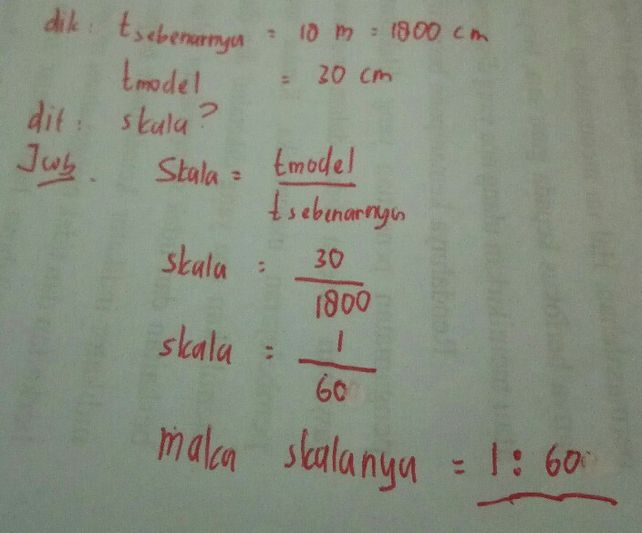 dik: tsebenarnya = 18 m = 1800 cm
tmodel = 30 cm
dit: skala?
Jwb. Skala = tmodel
tsebenarnya
skala = 30
1800
skala = 1
60
maka skalanya = 1 : 60